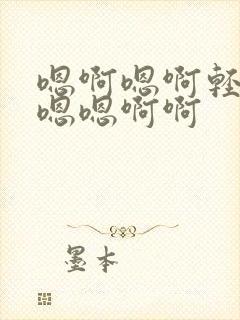 嗯啊嗯啊轻
嗯嗯啊啊
墨本